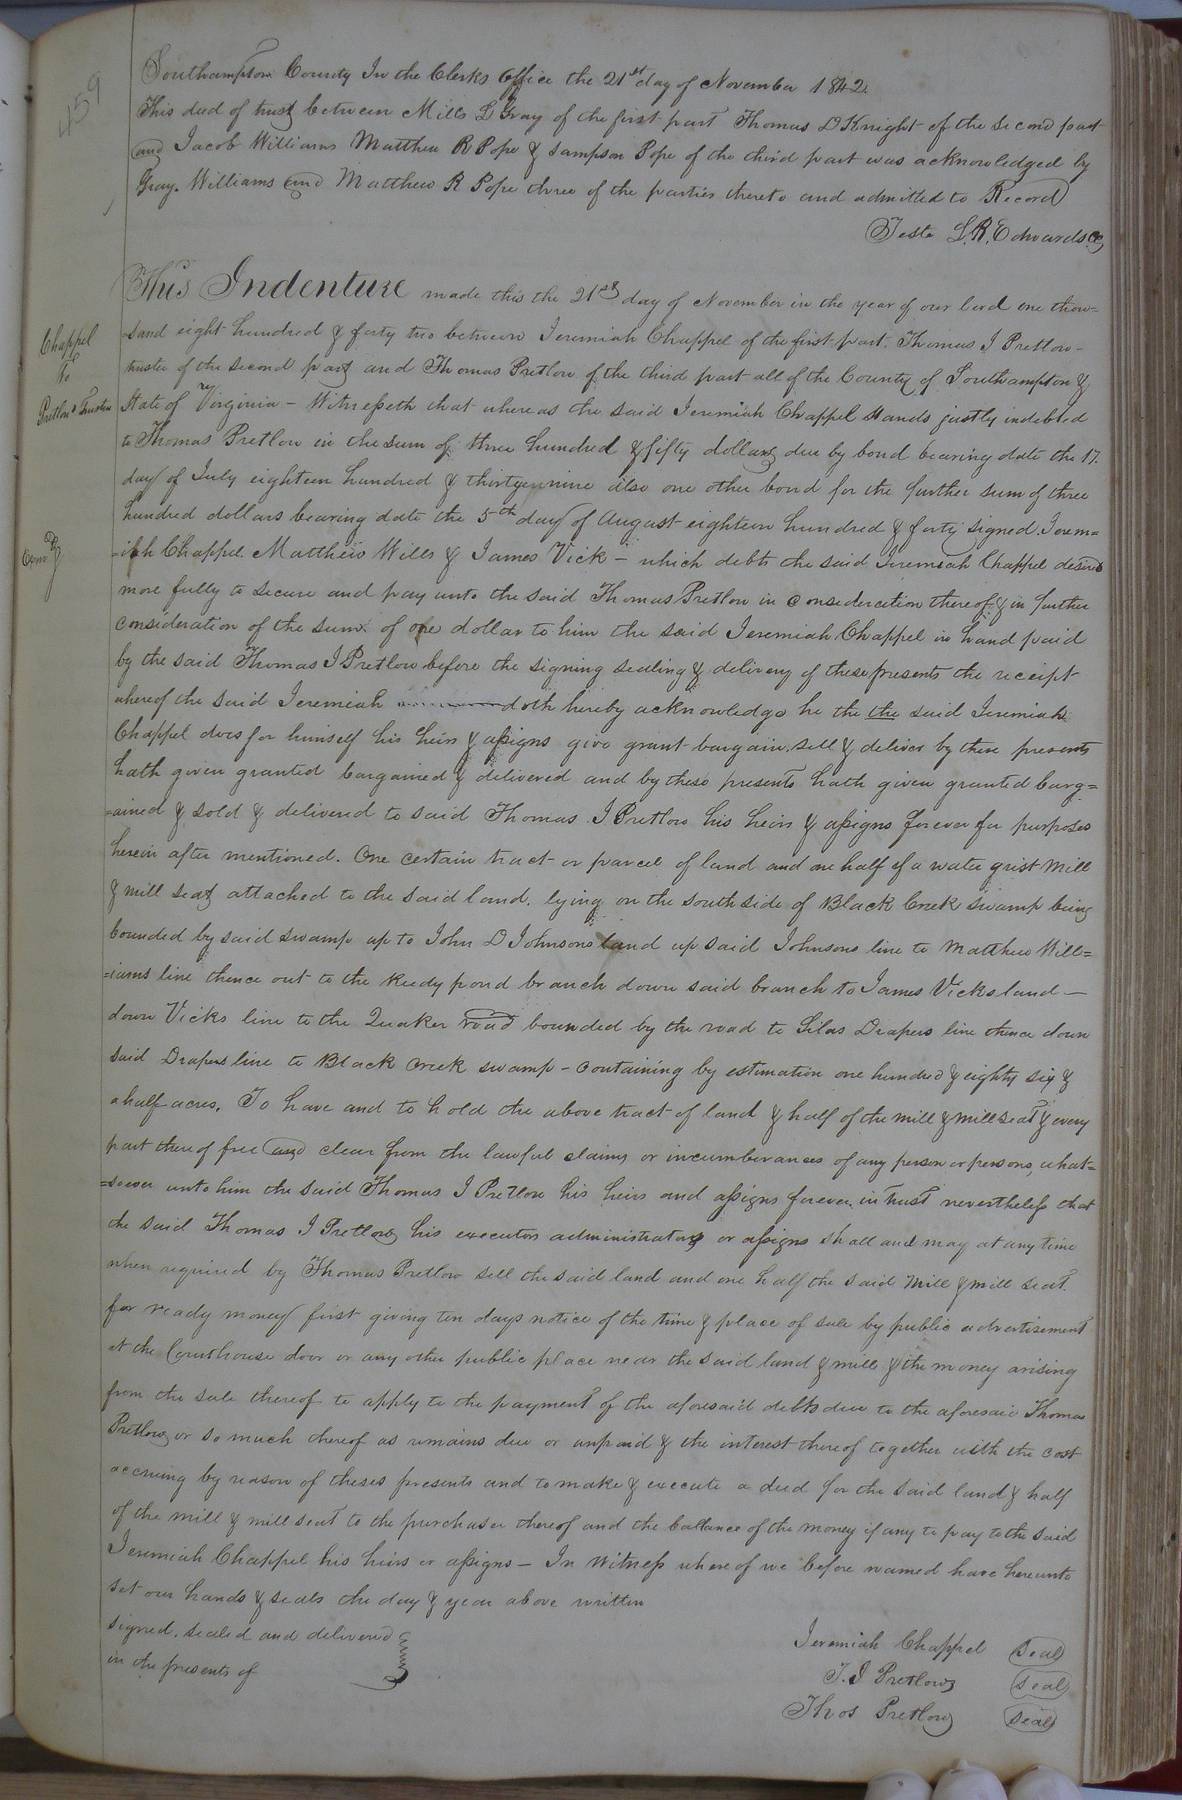 459
Southampton County In the Clerks Office the 21st day of November 1842
This deed of trust between Mills L Gray of the first part Thomas D Knight of the second part
and Jacob Williams Matthew R Pope & Sampson Pope of the third part was acknowledged by
Gray. Williams and Matthew R Pope three of the parties thereto and admitted to Record
Teste L. R. Edwards
This Indenture made this the 21st day of November in the year of our lord one thou=
=sand eight hundred & forty two between Jeremiah Chappel of the first part. Thomas J Pretlow
trustee of the second part and Thomas Pretlow of the third part all of the County of Southampton &
State of Virginia - Witnesseth that whereas the said Jeremiah Chappel stands justly indebted
to Thomas Pretlow in the sum of three hundred & fifty dollars due by bond bearing date the 17.
day of July eighteen hundred & thirty nine also one other bond for the further sum of three
hundred dollars bearing date the 5th day of August eighteen hundred & forty signed Jerem=
=iah Chappel Matthew Wills & James Vick - which debts the said Jeremiah Chappel desires
more fully to secure and pay unto the said Thomas Pretlow in consideration thereof & in further
consideration of the sum of one dollar to him the said Jeremiah Chappel in hand paid
by the said Thomas J Pretlow before the signing sealing & delivery of these presents the receipt
whereof the said Jeremiah doth hereby acknowledge he the the said Jeremiah
Chappel does for himself his heirs & assigns give grant bargain, sell & deliver by these presents
hath given granted bargained & delivered and by these presents hath given granted barg=
=ained & sold & delivered to said Thomas J Pretlow his heirs & assigns forever for purposes
herein after mentioned. One certain tract or parcel of land and one half of a water grist mill
& mill seat attached to the said land. lying on the south side of Black Creek swamp being
bounded by said swamp up to John D Johnsons land up said Johnsons line to Matthew Will=
=iams line thence out to the Reedy pond branch down said branch to James Vicks land -
down Vicks line to the Quaker road bounded by the road to Silas Drapers line thence down
said Drapers line to Black Creek swamp - containing by estimation one hundred & eighty six &
a half acres, To have and to hold the above tract of land & half of the mill & mill seat & every
part thereof free and clear from the lawful claims or incumberances of any person or persons, what=
=soever unto him the said Thomas J Pretlow his heirs and assigns forever, in trust nevertheless that
the said Thomas J Pretlow his executors administrators or assigns shall and may at any time
when required by Thomas Pretlow sell the said land and one half the said Mill & mill seat.
for ready money first giving ten days notice of the time & place of sale by public advertisement
at the Courthouse door or any other public place near the said land & mill & the money arising
from the sale thereof to apply to the payment of the aforesaid debts due to the aforesaid Thomas
Pretlow or so much thereof as remains due or unpaid & the interest thereof together with the cost
accruing by reason of theses presents and to make & execute a deed for the said land & half
of the mill & mill seat to the purchaser thereof and the ballance of the money if any to pay to the said
Jeremiah Chappel his heirs or assigns - In Witness whereof we before named have hereunto
set our hands & seals the day & year above written
signed. sealed and delivered
in the presents of
Jeremiah Chappel seal
T. J Pretlow seal
Thos Pretlow seal
Chappel
to
Pretlow Trustee